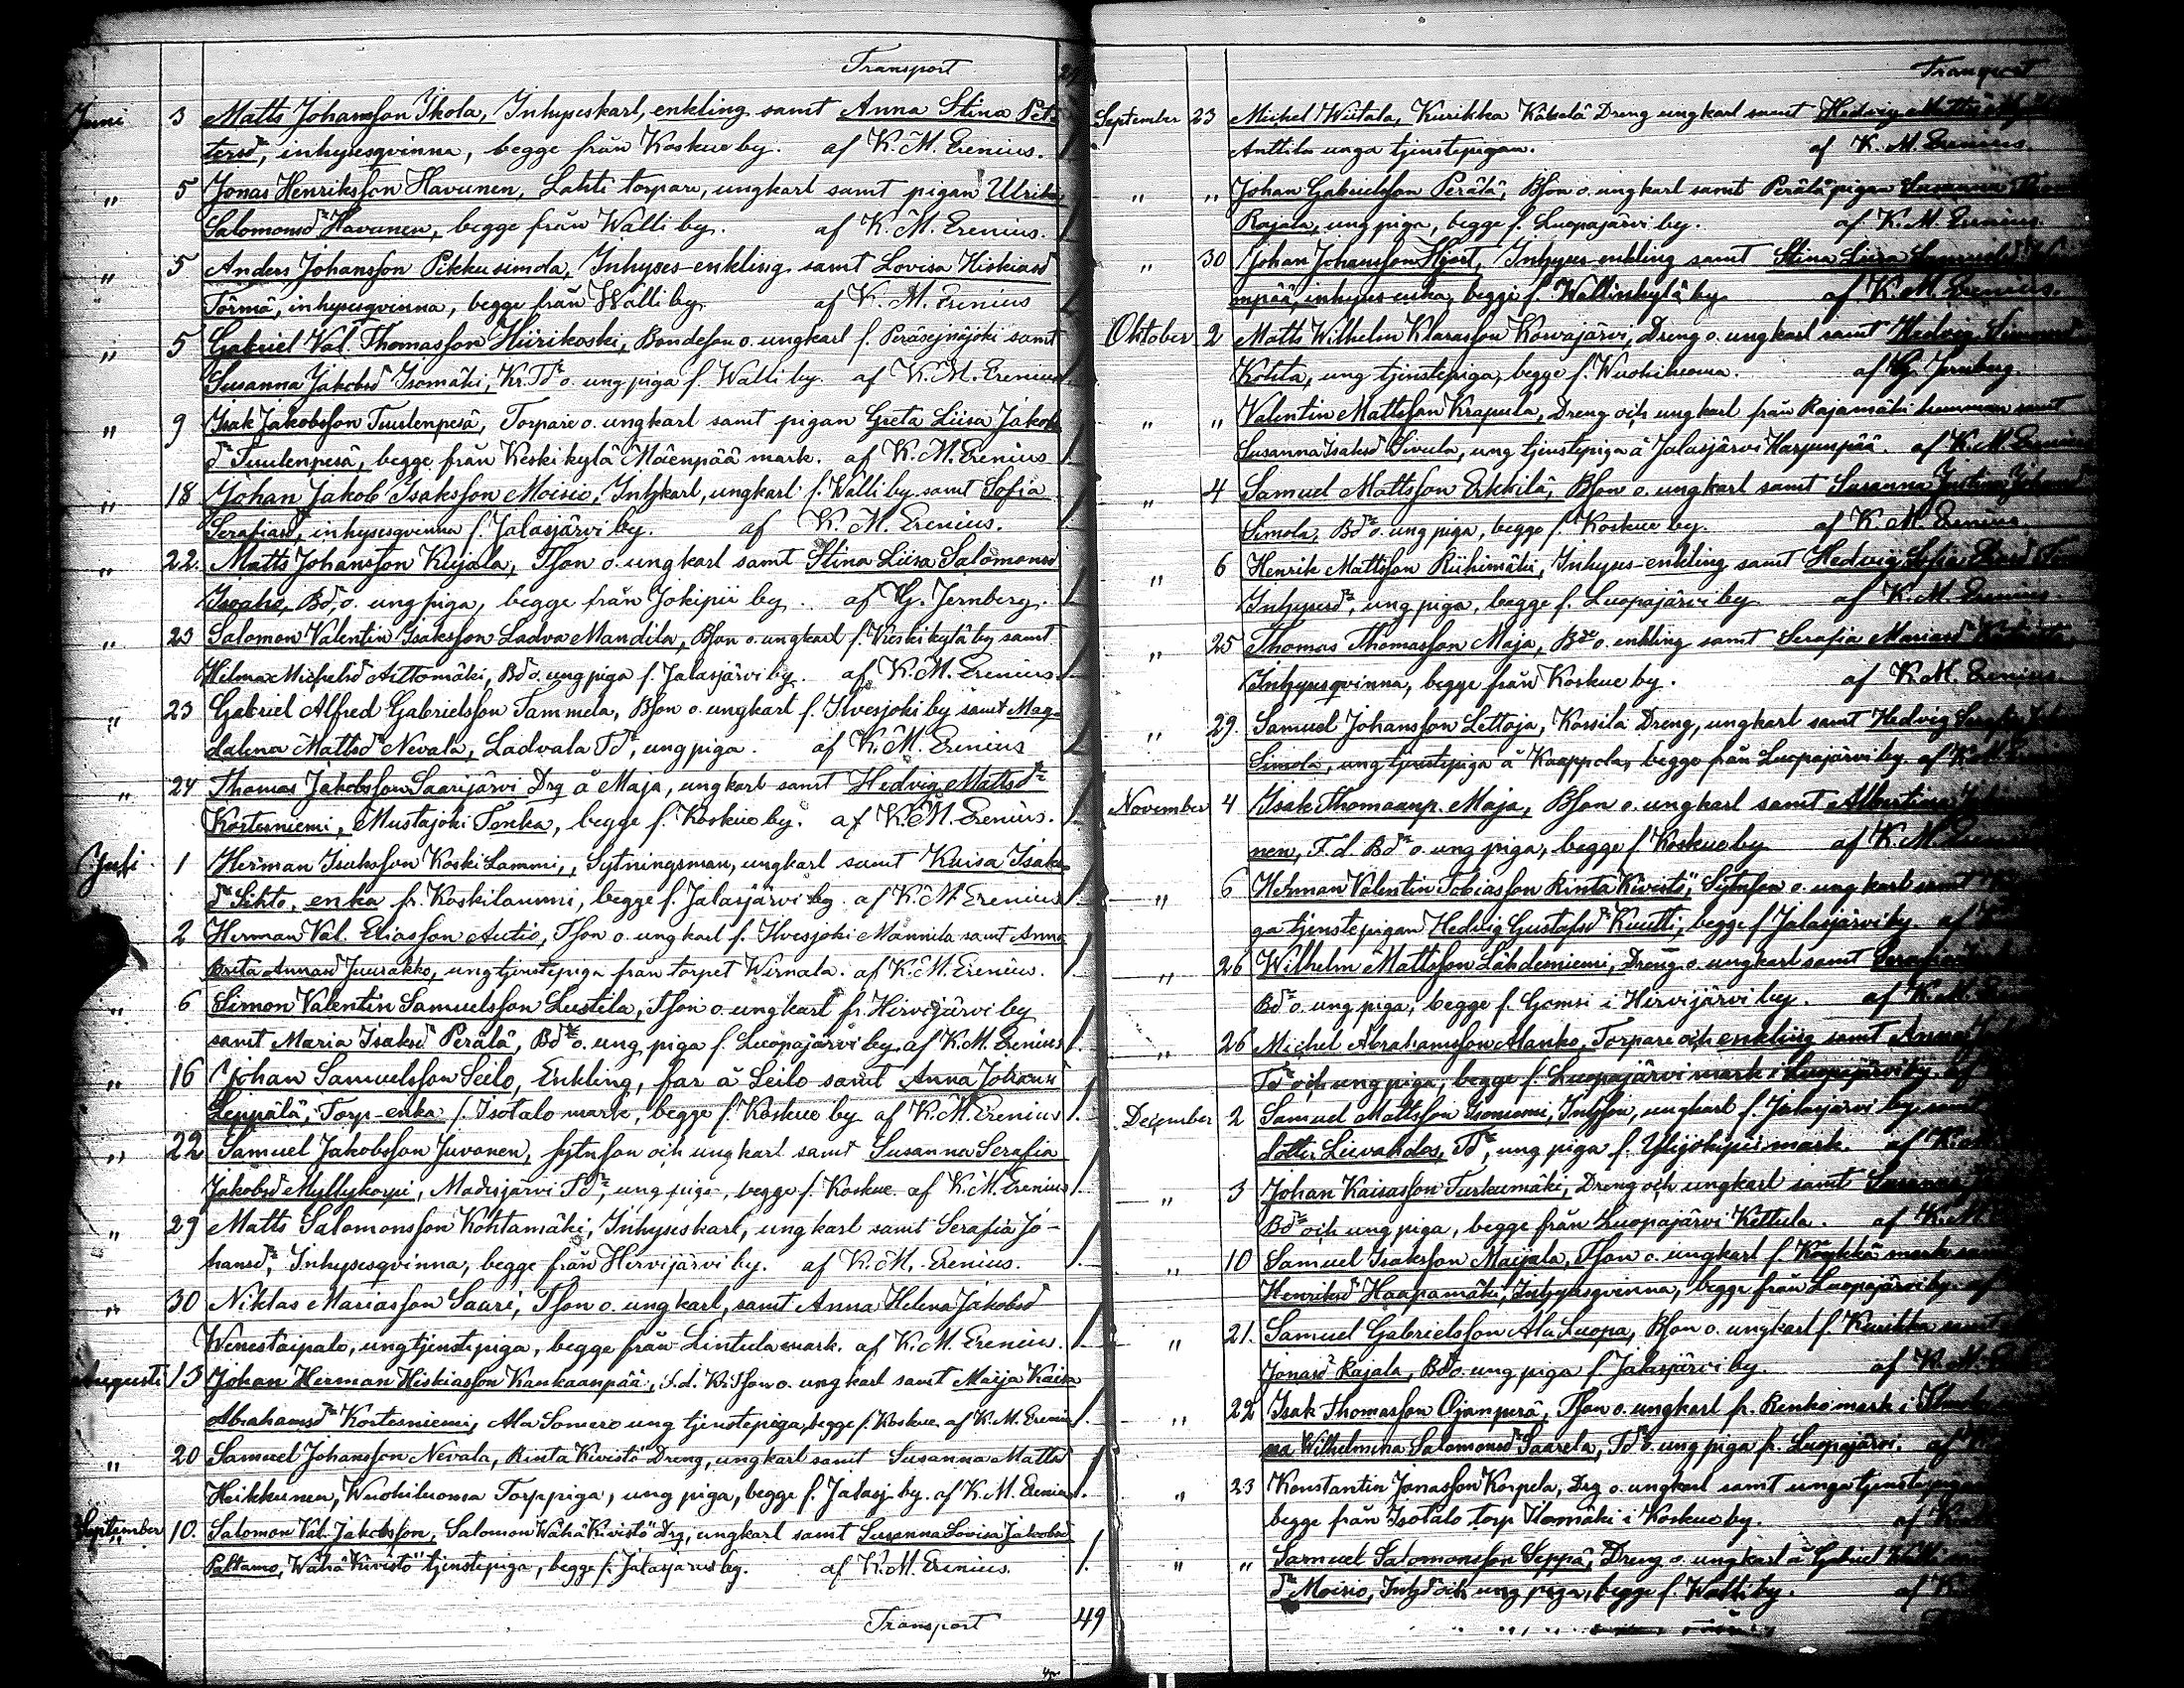 Transport
Juni 3 Matts Johansson Ikola, Inhyseskarl, enkling samt Anna Stina Pet-
tersd:, inhysesqvinna, begge från Koskue by. af K. M. Erenius. 1.
" 5 Jonas Henriksson Havunen, Lahti torpare, ungkarl samt pigan Ulrika
Salomonsd:r Havunen, begge från Walli by. af K. M. Erenius. 1.
" 5 Anders Johansson Pikkusimola, Inhyses-enkling samt Lovisa Hiskiasd
Törmä, inhysesqvinna, begge från Walli by af K. M. Erenius 1
" 5 Gabriel Val. Thomasson Hiirikoski, Bondeson o. ungkarl f. Peräsejnäjoki samt
Susanna Jakobsd Isomäki, Kr. Td:r o. ung piga f. Walli by. af K. M. Erenius 1.
" 9 Isak Jakobsson Tuulenpesä, Torpare o. ungkarl samt pigan Greta Liisa Jakobs
d:r Tuulenpesä, begge från Keskikylä Mäenpää mark. af K. M. Erenius 1.
" 18 Johan Jakob Isaksson Moisio, Inhkarl, ungkarl f. Walli by samt Sofia
Serafiasd, inhysesqvinna f. Jalasjärvi by. af K. M. Erenius. 1.
" 22. Matts Johansson Kujala, Tson o. ungkarl samt Stina Liisa Salomonsd
Isoaho, Bd, o. ung piga, begge från Jokipii by. af G. Jernberg. 1.
" 23 Salomon Valentin Isaksson Ladva Mandila, Bson o. ungkarl f. Keskikylä by samt
Hilma Michelsd Aittomäki, Bd o. ung piga f. Jalasjärvi by. af K. M. Erenius. 1.
" 23 Gabriel Alfred Gabrielsson Tammela, Bson o. ungkarl f. Ilvesjoki by samt Mag-
dalena Mattsd Nevala, Ladvala Td:r, ung piga. af K. M. Erenius 1
" 24 Thomas Jakobsson Saarijärvi Drg å Maja, ungkarl samt Hedvig Mattsd:r
Kortesniemi, Mustajoki Tenka, begge f. Koskue by. af K. M. Erenius. 1.
Juli 1 Herman Isaksson Koski Lammi, Sytningsman, ungkarl samt Kaisa Isaks
d:r Sihto, enka fr. Koskilammi, begge f. Jalasjärvi by. af K. M. Erenius 1.
2 Herman Val. Eliasson Autio, Tson o. ungkarl f. Ilvesjoki Mannila samt Anna
Brita Annasd Juusakko, ung tjenstepiga från torpet Wirnala. af K. M. Erenius. 1
" 6 Simon Valentin Samuelsson Lustila, Tson o. ungkarl fr. Hirvijärvi by
samt Maria Isaksd Perälä, Bd:r o. ung piga f. Luopajärvi by. af K. M. Erenius 1.
" 16 Johan Samuelsson Seilo, Enkling, far å Seilo samt Anna Johansd
Leppälä, Torp-enka f. Isotalo mark, begge f. Koskue by af K. M. Erenius 1.
" 22 Samuel Jakobsson Juvonen, sytnson och ungkarl samt Susanna Serafia
Jakobsd Myllykorpi, Madesjärvi Td:r, ung piga, begge f. Koskue. af K. M. Erenius 1.
" 29 Matts Salomonsson Kohtamäki, Inhyseskarl, ungkarl samt Serafia Jo-
hansd:r, Inhysesqvinna, begge från Hirvijärvi by. af K. M. Erenius. 1.
" 30 Niklas Mariasson Saari, Tson o. ungkarl, samt Anna Helena Jakobsd
Wenestaipalo, ung tjenstepiga, begge från Lintula mark. af K. M. Erenius. 1.
Augusti 13 Johan Herman Hiskiasson Kankaanpää, f.d. Kr. Tson o. ungkarl samt Maija Kaisa
Abrahamsd:r Kortesniemi, Ala Somero ung tjenstepiga, begge f. Koskue. af K. M. Erenius 1.
" 20 Samuel Johansson Nevala, Rinta Kivistö Dreng, ungkarl samt Susanna Mattsd
Heikkunen, Wuohiluoma Torppiga, ung piga, begge f. Jalasj. by. af K. M. Erenius 1.
September 10. Salomon Val. Jakobsson, Salomon Wähä Kivistö Drg, ungkarl samt Susanna Lovisa Jakobsd
Paltamo, Wähä Kivistö tjenstepiga, begge f. Jalasjärvi by. af K. M. Erenius. 1.
Transport 49
Transport
September 23 Michel Wiitala, Kurikka Käkelä Dreng ungkarl samt Hedvig
Anttila unga tjenstepigan. af K. M. Erenius.
" " Johan Gabrielsson Perälä, Bson o. ungkarl samt Perälä pigan Susanna
Rajala, ung piga, begge f. Luopajärvi by. af K. M. Erenius.
" 30 Johan Johansson Hjort, Inhyses-enkling samt Stina Liisa
mpää, inhyses enka, begge f. Wallinkylä by af K. M. Erenius.
Oktober 2 Matts Wilhelm Klarasson Kowajärvi, Dreng o. ungkarl samt Hedvig
Kohta, ung tjenstepiga, begge f. Wuohiluoma. af G. Jernberg.
" " Valentin Mattsson Krapula, Dreng och ungkarl från Rajamäki hemman samt
Susanna Isaksd Sivula, ung tjenstepiga å Jalasjärvi Harjunpää. af K. M. Erenius
" 4 Samuel Mattsson Erkkilä, Bson o. ungkarl samt Susanna Justina
Simola, Bd:r o. ung piga, begge f. Koskue by. af K. M. Erenius
" 6 Henrik Mattsson Riihimäki, Inhyses-enkling samt Hedvig Sofia
Inhysesd:r, ung piga, begge f. Luopajärvi by. af K. M. Erenius
" 25 Thomas Thomasson Maja, Bde o. enkling samt Serafia Mariasd
Inhysesqvinna, begge från Koskue by. af K. M. Erenius.
" 29. Samuel Johansson Lettoja, Kassila Dreng, ungkarl samt Hedvig
Simola, ung tjenstepiga å Kaappola, begge från Luopajärvi by. af K. M.
November 4 Isak Thomasp. Maja, Bson o. ungkarl samt Albertina
nen, F.d. Bd:r o. ung piga, begge f Koskue by af K. M.
" 6 Herman Valentin Tobiasson Rinta Kivistö, Sytnson o. ungkarl samt
ga tjenstepigan Hedvig Gustafsd:r Kuutti, begge f Jalasjärvi by af
" 26 Wilhelm Mattsson Lähdeniemi, Dreng o. ungkarl samt Serafia
Bd:r o. ung piga, begge f. Gomsi i Hirvijärvi by. af K. M.
" 26 Michel Abrahamsson Alanko, Torpare och enkling samt Anna
Td:r och ung piga, begge f. Luopajärvi mark i Luopajärvi by. af
December 2 Samuel Mattsson Isoniemi, Inhson, ungkarl f. Jalasjärvi by samt
dotter Lievahdes, Td:r, ung piga f. Ylijokipii mark. af K. M.
" 3 Johan Kaisasson Turkumäki, Dreng och ungkarl samt Susanna
Bd:r och ung piga, begge från Luopajärvi Kettula. af K. M.
" 10 Samuel Isaksson Maijala, Tson o. ungkarl f. Köykkä mark samt
Henriksd Haapamäki, Inhysesqvinna, begge från Luopajärvi by. af
" 21. Samuel Gabrielsson Ala Luopa, Bson o. ungkarl f. Kurikka samt
Jonasd Rajala, Bd o. ung piga f. Jalasjärvi by. af K. M.
" 22 Isak Thomasson Ojanperä, Tson o. ungkarl fr. Renko mark i
na Wilhelmina Salomonsd:r Saarela, Td:r o. ung piga fr. Luopajärvi. af
" 23 Konstantin Jonasson Korpela, Drg o. ungkarl samt unga tjenstepigan
begge från Isotalo torp Ilomäki i Koskue by. af
" " Samuel Salomonsson Seppä, Dreng o. ungkarl å Gabriel
d:r Moisio, Inhd och ung piga, begge f. Walli by. af